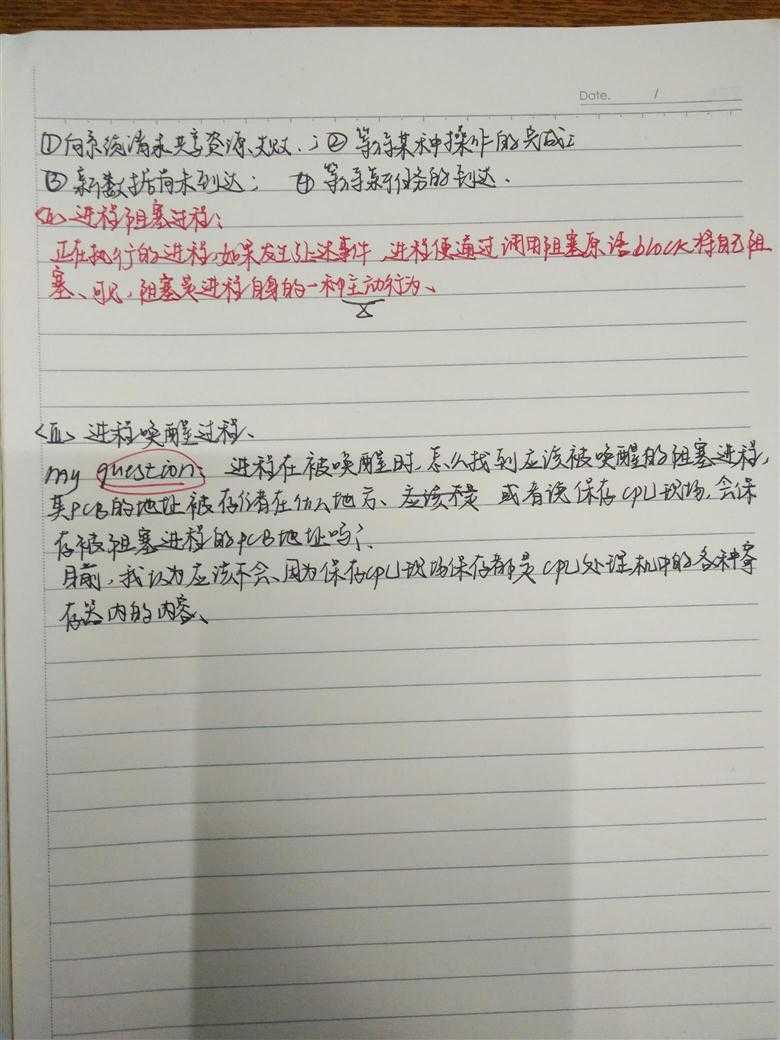 Date. /
①向系统请求共享资源失败.；② 等待某种操作的完成；
③ 新数据尚未到达； ④ 等待新任务的到达.
<Ⅱ> 进程阻塞过程：
正在执行的进程,如果发生上述事件,进程便通过调用阻塞原语block将自己阻
塞、可见,阻塞是进程自身的一种主动行为、
<Ⅲ> 进程唤醒过程、
my question： 进程在被唤醒时,怎么找到应该被唤醒的阻塞进程,
其PCB的地址被存储在什么地方、应该是 或者说保存CPU现场,会保
存被阻塞进程的PCB地址吗?、
目前,我认为应该不会、因为保存CPU现场保存都是CPU处理机中的各种寄
存器内的内容、